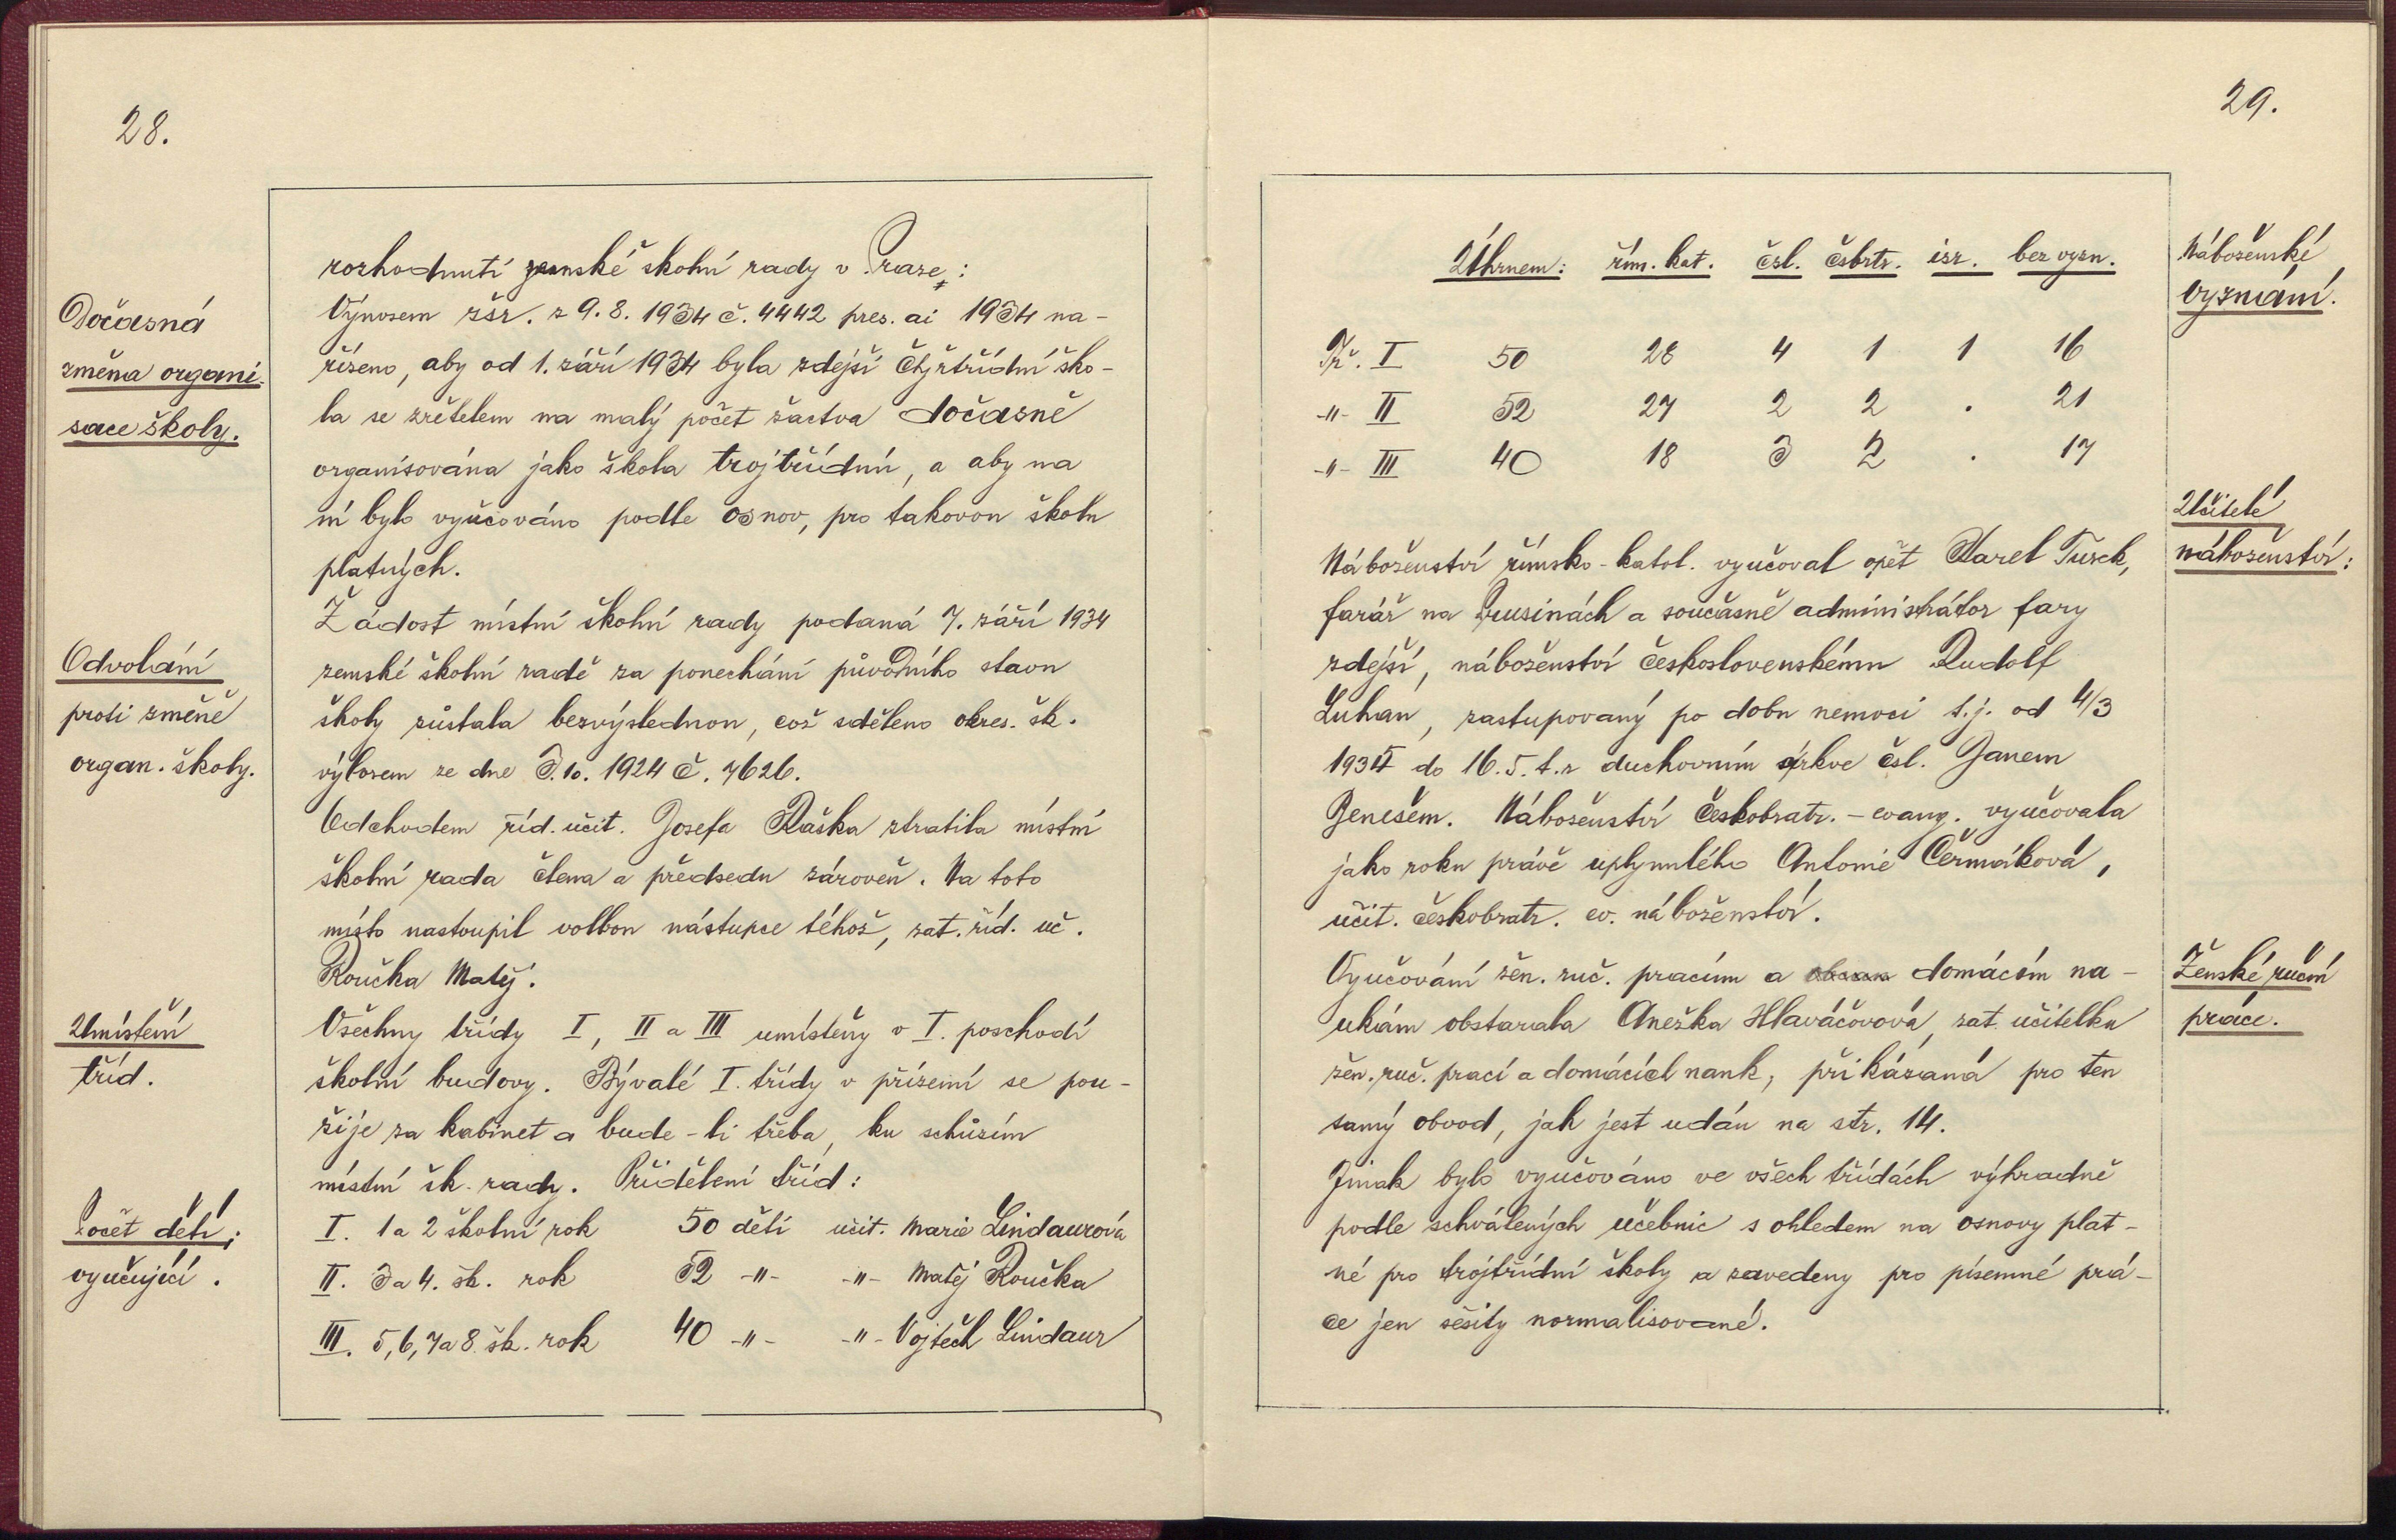 28.
rozhodnutí zemské školní rady v Praze:
Dočasná
změna organi-
sace školy.
Výnosem zšr. z 9. 8. 1934 č. 4442 pres. ai 1934 na-
řízeno, aby od 1. září 1934 byla zdejší čtyřtřídní ško-
la se zřetelem na malý počet žactva dočasně
organisována jako škola trojtřídní, a aby na
ní bylo vyučováno podle osnov, pro takovou školu
platných.
Odvolání
proti změně
organ. školy.
Žádost místní školní rady podaná 7. září 1934
zemské školní radě za ponechání původního stavu
školy zůstala bezvýslednou, což sděleno okres. šk.
výborem ze dne 3. 10. 1924 č. 7626.
Odchodem říd. učit. Josefa Raška ztratila místní
školní rada člena a předsedu zároveň. Na toto
místo nastoupil volbou nástupce téhož, zat. říd. uč.
Roučka Matěj.
Umístění
tříd.
Všechny třídy I, II a III umístěny v I. poschodí
školní budovy. Bývalé I. třídy v přízemí se pou-
žije za kabinet a bude-li třeba, ku schůzím
místní šk. rady. Přidělení tříd:
Počet dětí;
vyučující.
I. 1 a 2 školní rok 50 dětí učit. Marie Lindaurová
II. 3 a 4. šk. rok 52 -"- -"- Matěj Roučka
III. 5, 6, 7 a 8. šk. rok 40 -"- -"- Vojtěch Lindaur
29.
Náboženské
vyznání.
Úhrnem: řím. kat. čsl. čsbrtr. izr. bez vyzn.
Tř. I 50 28 4 1 1 16
-"- II 52 27 2 2 . 21
-"- III 40 18 3 2 . 17
Učitelé
náboženství:
Náboženství římsko-katol. vyučoval opět Karel Turek,
farář na Jrusinách a současně administrátor fary
zdejší, náboženství československému Rudolf
Luhan, zastupovaný po dobu nemoci t.j. od 4/3
1934 do 16. 5. t. r duchovním církve čsl. Janem
Benešem. Náboženství českobratr. - evang. vyučovala
jako roku právě uplynulého Antonie Čermáková,
učit. českobratr. ev. náboženství.
Ženské ruční
práce.
Vyučování žen. ruč. pracím a domácím na-
ukám obstarala Anežka Hlaváčovová, zat. učitelka
žen. ruč. prací a domácích nauk, přikázaná pro ten
samý obvod, jak jest udán na str. 14.
Jinak bylo vyučováno ve všech třídách výhradně
podle schválených učebnic s ohledem na osnovy plat-
né pro trojtřídní školy a zavedeny pro písemné prá-
ce jen sešity normalisované.